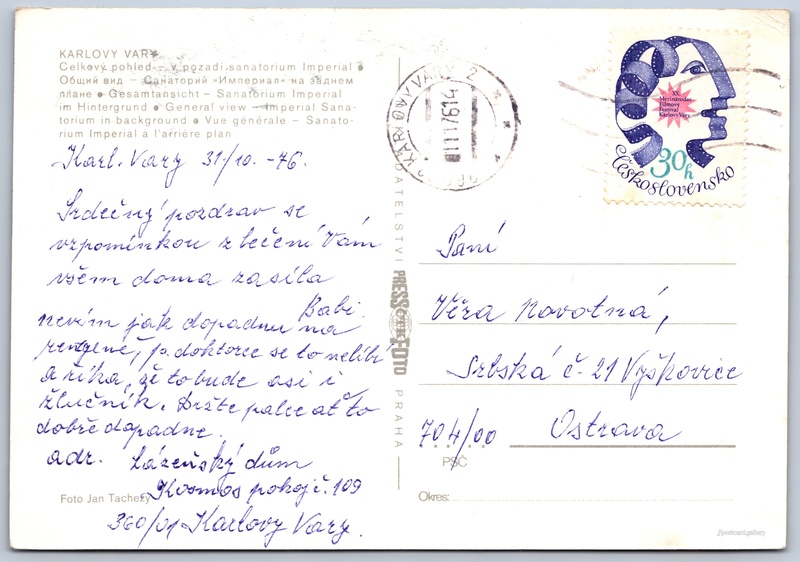 KARLOVY VARY
Celkový pohled – v pozadí sanatorium Imperial ●
Общий вид – Санаторий «Империал» на заднем
плане ● Gesamtansicht – Sanatorium Imperial
im Hintergrund ● General view – Imperial Sana-
torium in background ● Vue générale – Sanato-
rium Imperial à l'arrière plan
Karl. Vary 31/10. -76.
Srdečný pozdrav se
vzpomínkou z léčení Vám
všem doma zasílá
Babi.
nevím jak dopadnu na
rengeně, p. doktorce se to nelíbí
a říká, že to bude asi i
žlučník. Držte palce ať to
dobře dopadne.
adr. Lázeňský dům
Kosmos pokoj č. 109
360/01 Karlovy Vary.
Foto Jan Tachezy
KARLOVY VARY 2
VYDAVATELSTVÍ PRESSFOTO PRAHA
XX.
Mezinárodní
Filmový
Festival
Karlovy Vary
30h
Československo
Paní
Věra Novotná,
Srbská č. 21 Vyškovice
704/00 Ostrava
PSČ
Okres: